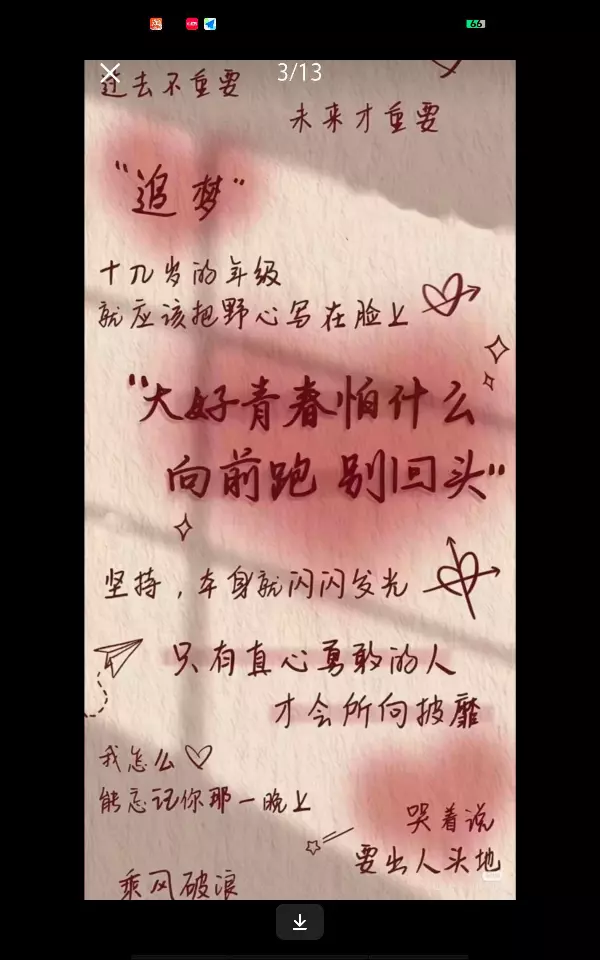 66
3/13
过去不重要
未来才重要
"追梦"
十几岁的年级
就应该把野心写在脸上
"大好青春怕什么
向前跑 别回头"
坚持，车身就闪闪发光
只有直心勇敢的人
才会所向披靡
我怎么
能忘记你那一晚上
哭着说
要出人头地
乘风破浪